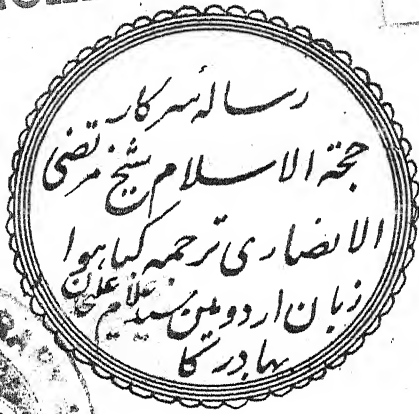 رسالۂ سرکار
حجۃ الاسلام شیخ مرتضی
الانصاری ترجمہ کیا ہوا
زبان اردو مین سید غلام علیخان
بہادر کا